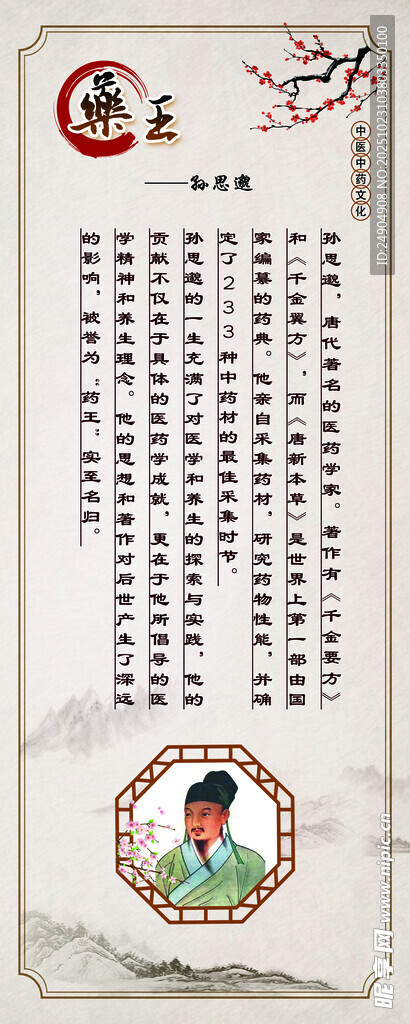 藥王
——孙思邈
中医中药文化
孙思邈，唐代著名的医药学家。著作有《千金要方》
和《千金翼方》，而《唐新本草》是世界上第一部由国
家编纂的药典。他亲自采集药材，研究药物性能，并确
定了233种中药材的最佳采集时节。
孙思邈的一生充满了对医学和养生的探索与实践，他的
贡献不仅在于具体的医药学成就，更在于他所倡导的医
学精神和养生理念。他的思想和著作对后世产生了深远
的影响，被誉为“药王”实至名归。
ID:24904908 NO:20251023103803350100
昵享网 www.nipic.cn